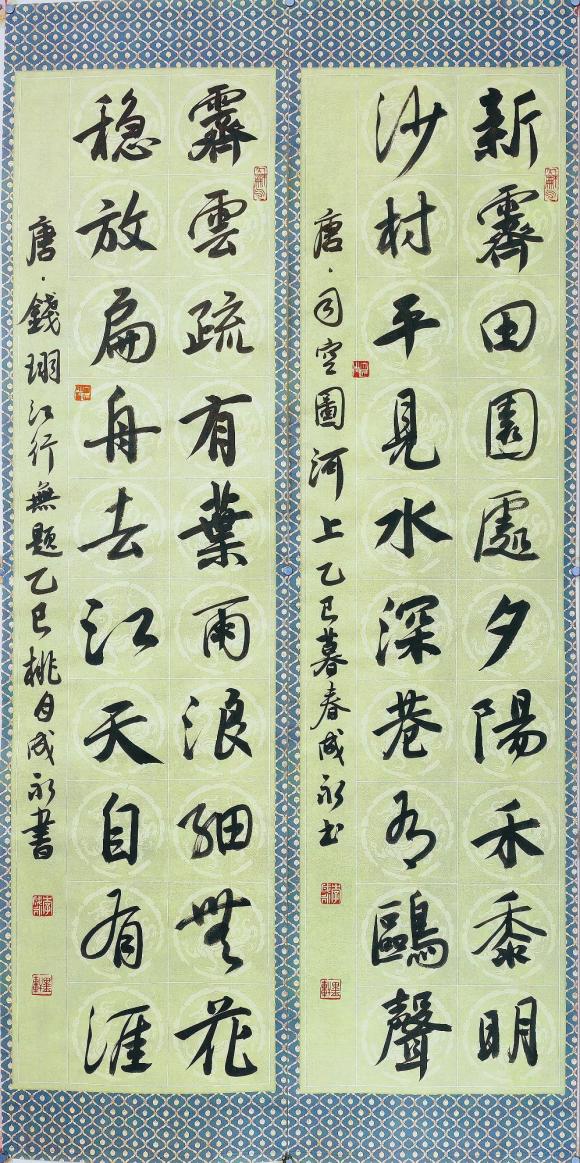 新霽田園處夕陽禾黍明
沙村平見水深巷有鷗聲
唐·司空圖河上乙巳暮春成永书
霽雲疏有葉雨浪細無花
稳放扁舟去江天自有涯
唐·錢珝江行無題乙巳桃月成永書